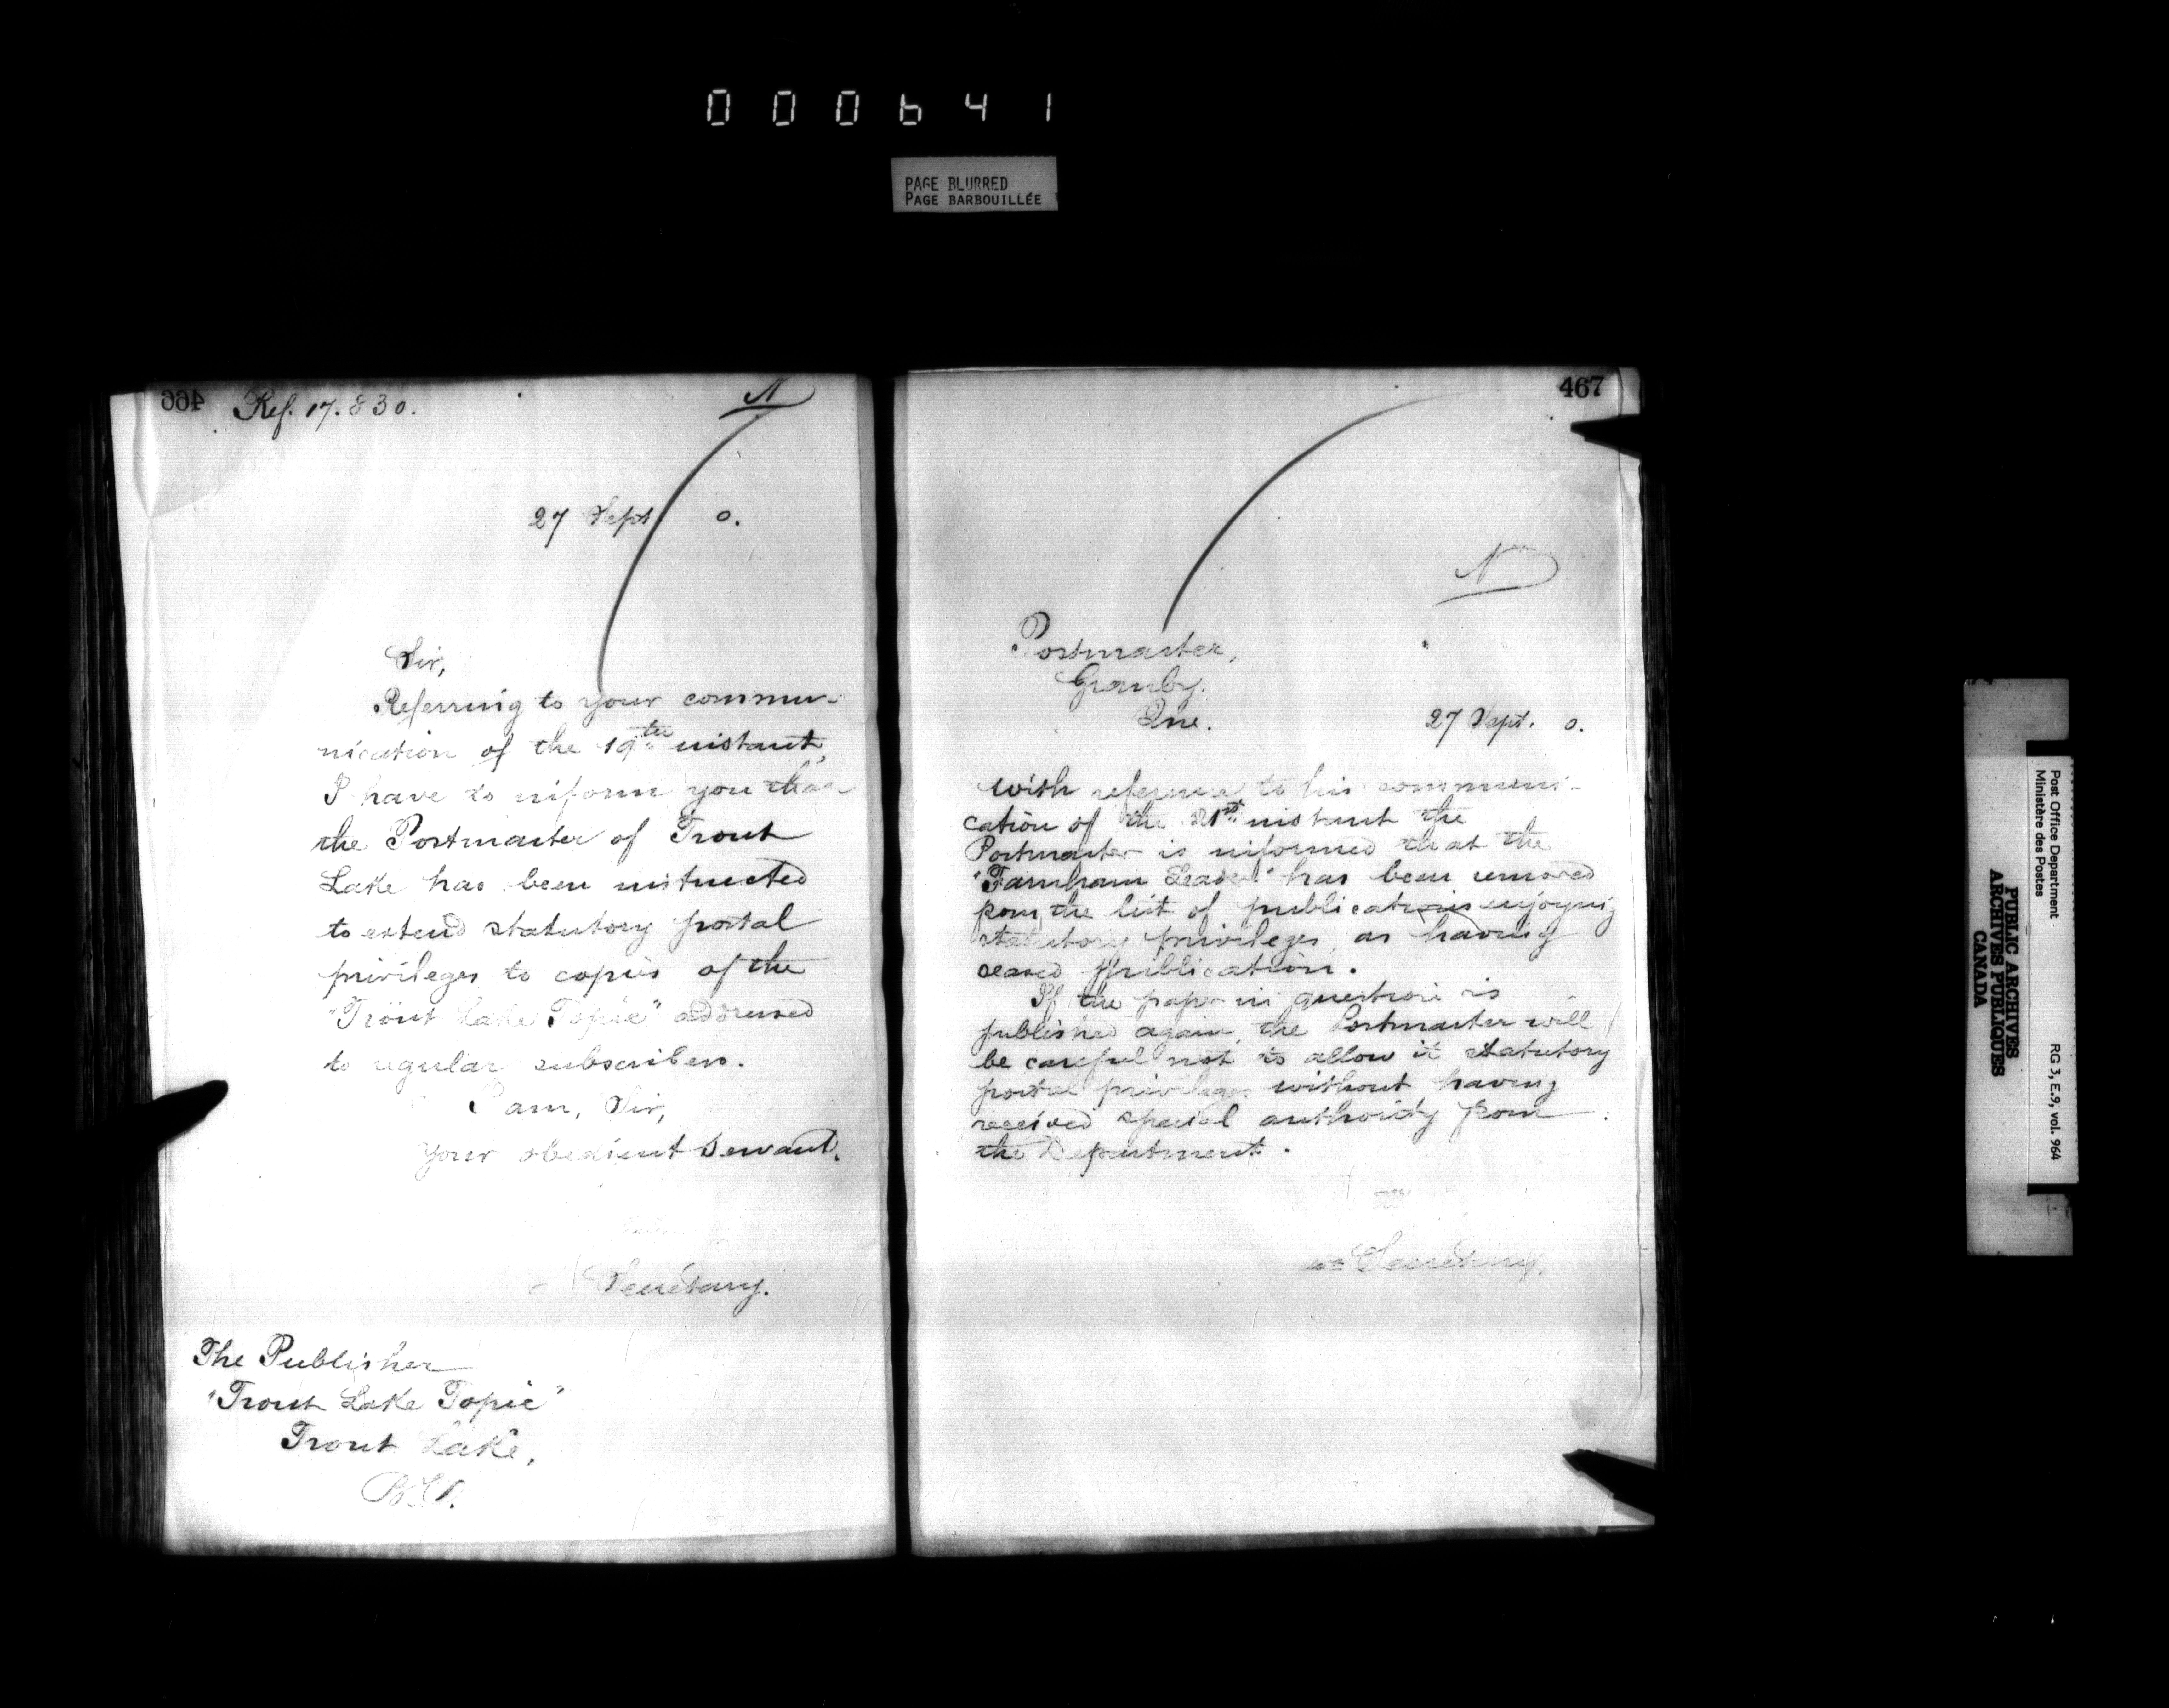 000641
PAGE BLURRED
PAGE BARBOUILLÉE
466 Ref. 17.830. N
27 Sept 0.
Sir,
Referring to your commu-
nication of the 19th instant,
I have to inform you that
the Postmaster of Trout
Lake has been instructed
to extend statutory postal
privileges to copies of the
"Trout Lake Topic" addressed
to regular subscribers.
I am, Sir,
Your obedient Servant.
Secretary.
The Publisher
"Trout Lake Topic"
Trout Lake,
B.C.
467
N
Postmaster,
Granby.
Que.
27 Sept. 0.
With reference to his communi-
cation of the 21st instant the
Postmaster is informed that the
"Farnham Leader" has been removed
from the list of publications enjoying
statutory privileges, as having
ceased publication.
If the paper in question is
published again, the Postmaster will
be careful not to allow it statutory
postal privileges without having
received special authority from
the Department.
Secretary.
Post Office Department
Ministère des Postes
RG 3, E.9, vol. 964
PUBLIC ARCHIVES
ARCHIVES PUBLIQUES
CANADA